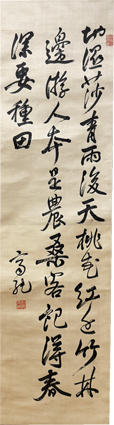 地濕莎青雨後天桃花紅近竹林
邊游人本是農桑客記得春
深要種田